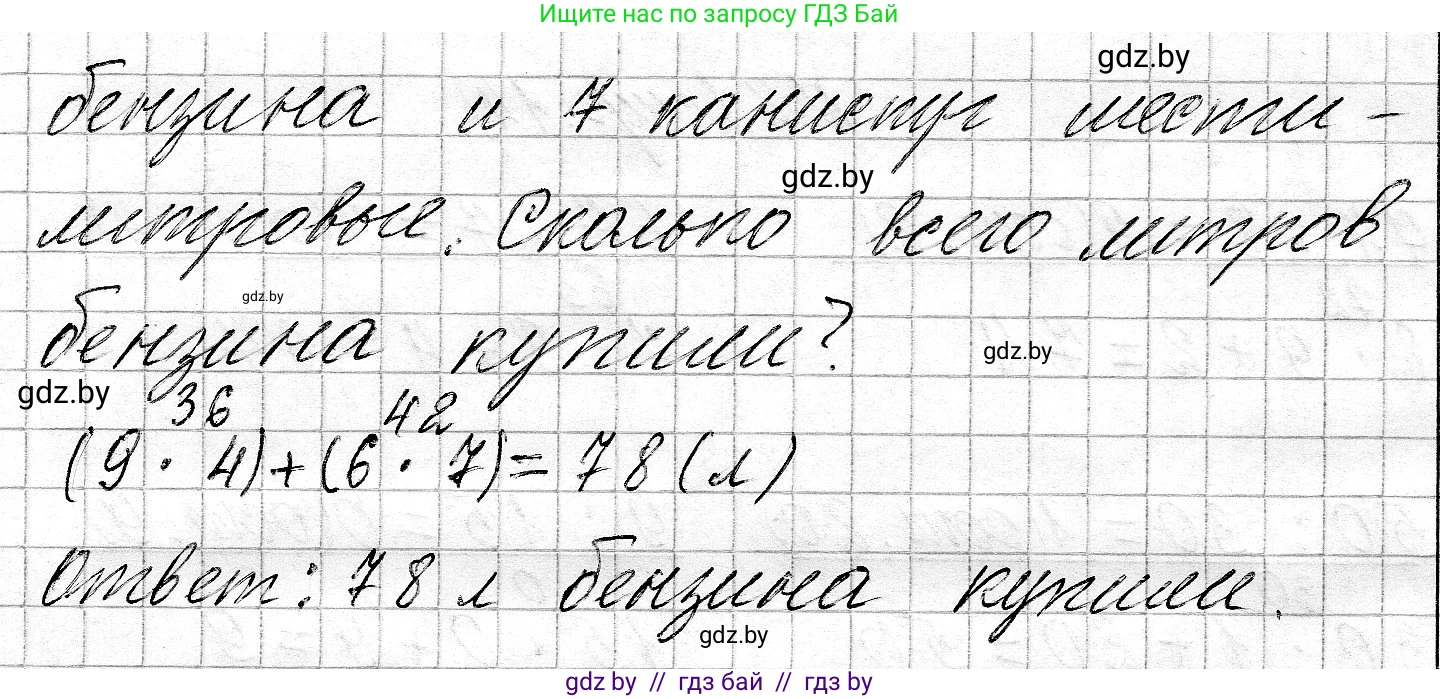 Ищите нас по запросу ГДЗ Бай
gdz.by
бензина и 7 канистр шести-
gdz.by
литровые. Сколько всего литров
gdz.by
бензина купили?
gdz.by
gdz.by
36 42
(9 · 4)+(6 · 7)= 78 (л)
Ответ: 78 л бензина купили.
gdz.by
gdz.by // гдз бай // гдз by